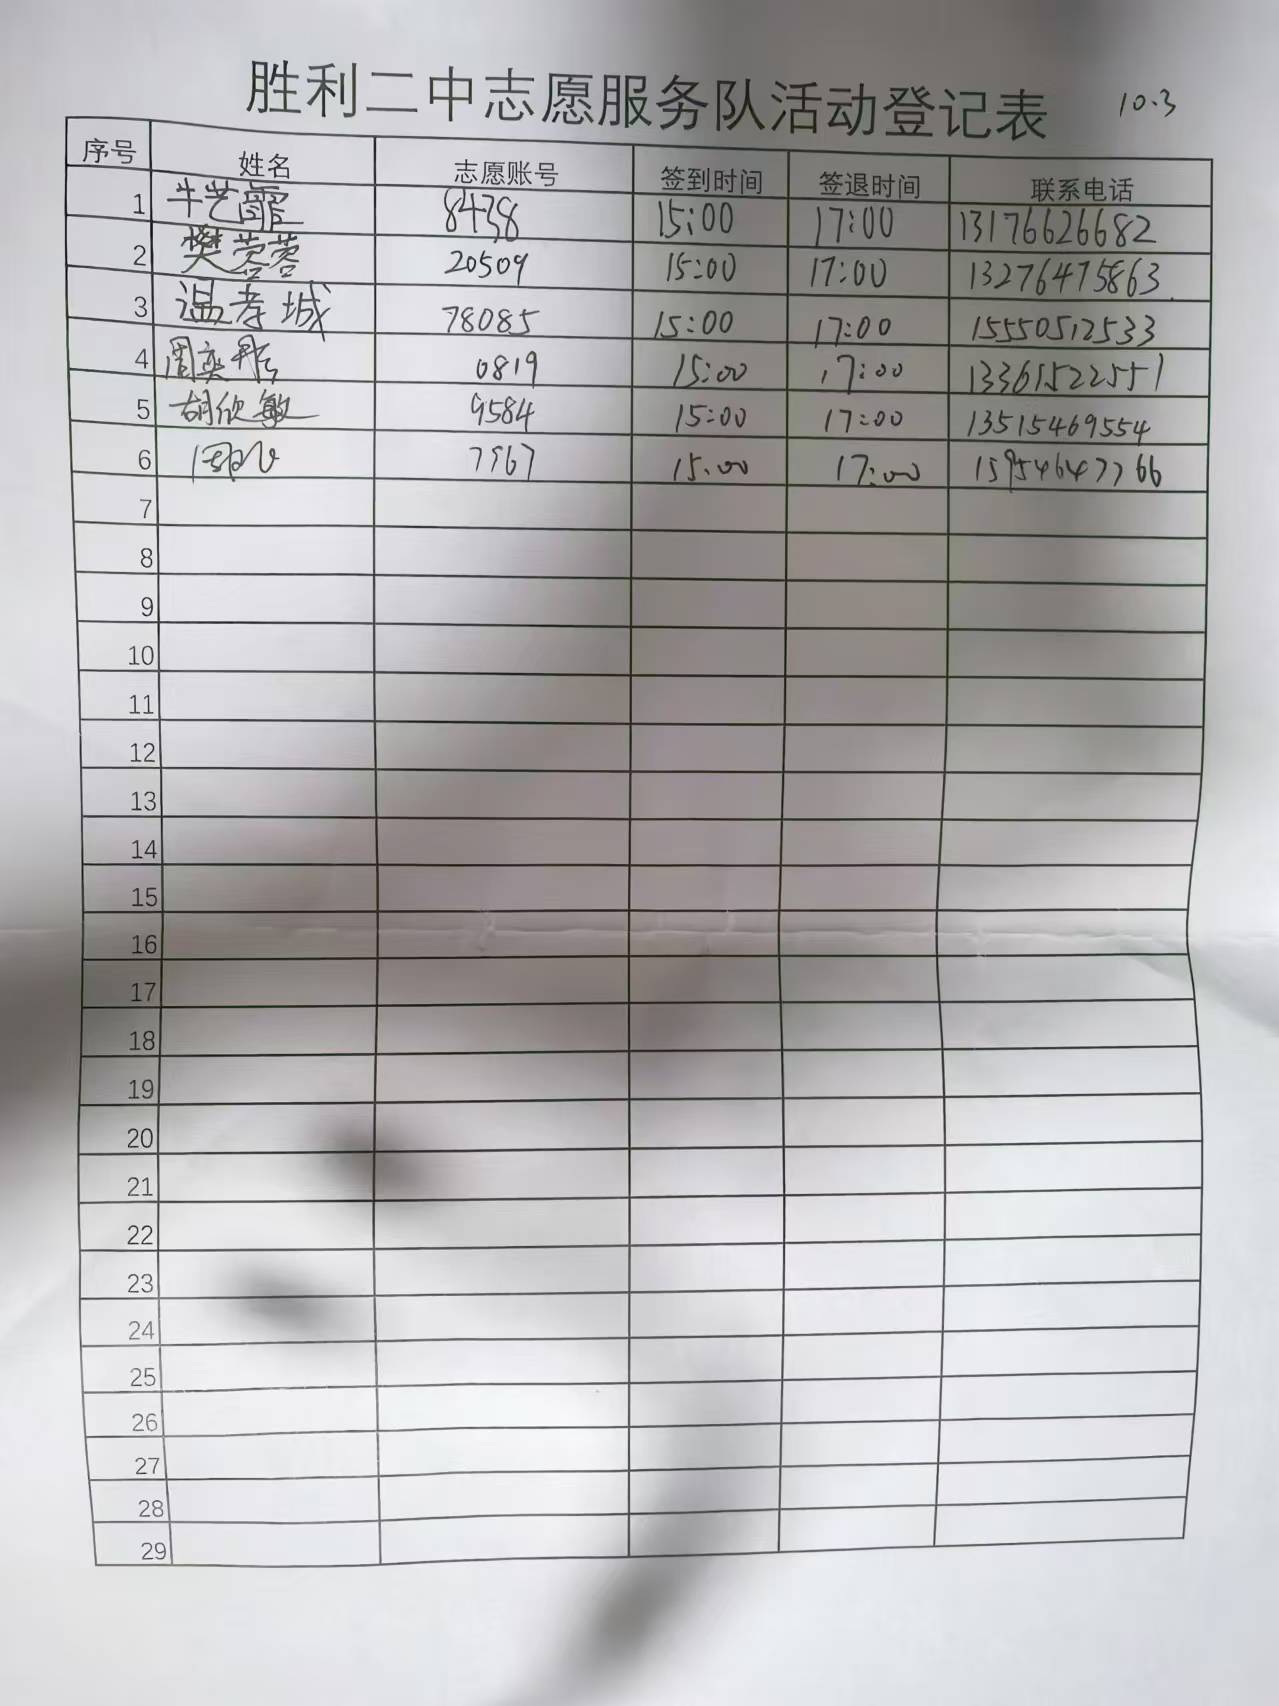 胜利二中志愿服务队活动登记表 10.3
序号 姓名 志愿账号 签到时间 签退时间 联系电话
1 牛艺霏 8438 15:00 17:00 13176626682
2 樊蓉蓉 20509 15:00 17:00 13276475863
3 温孝城 78085 15:00 17:00 15550512533
4 周奕彤 0819 15:00 17:00 13361522551
5 胡欣敏 9584 15:00 17:00 13515469554
6 7967 15:00 17:00 15954647766
7
8
9
10
11
12
13
14
15
16
17
18
19
20
21
22
23
24
25
26
27
28
29